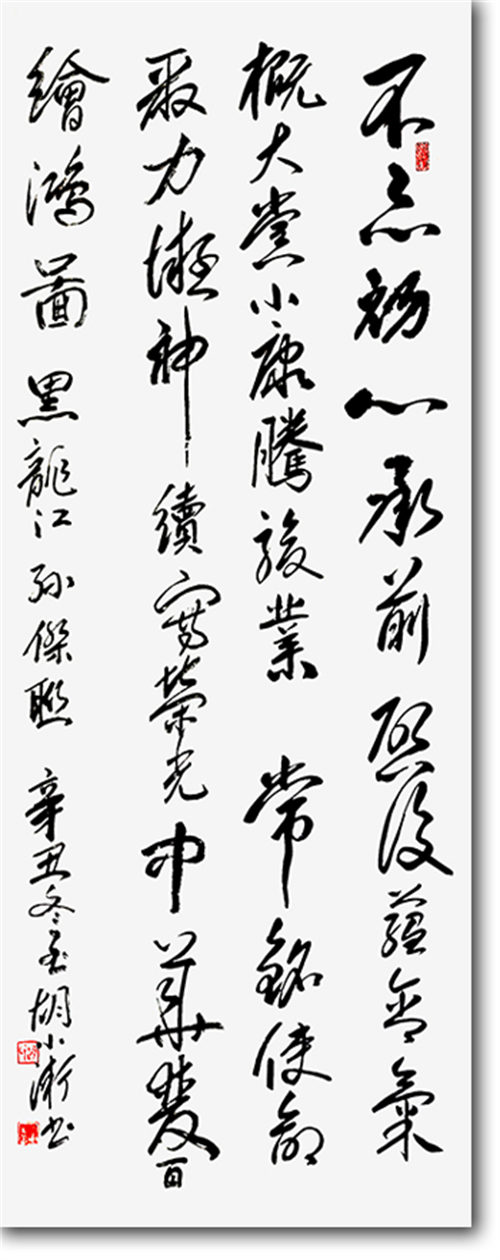 不忘初心承前啟後蘊含氣
概大黨小康騰駿業 常銘使命
聚力凝神續寫榮光中華雙百
繪鴻圖 黑龍江孫傑聯 辛丑冬至胡小書